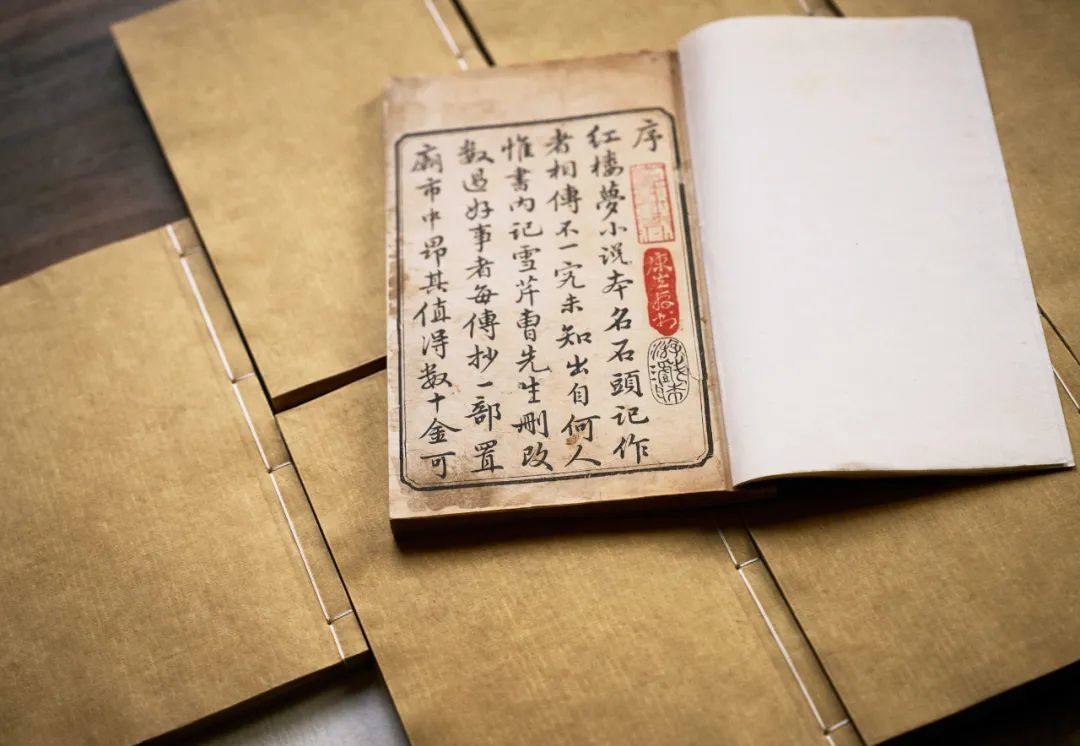 序
红楼夢小说本名石頭记作
者相傳不一究未知出自何人
惟書内记雪芹曹先生删改
数過好事者每傳抄一部置
廟市中昂其值得数十金可
康生校书